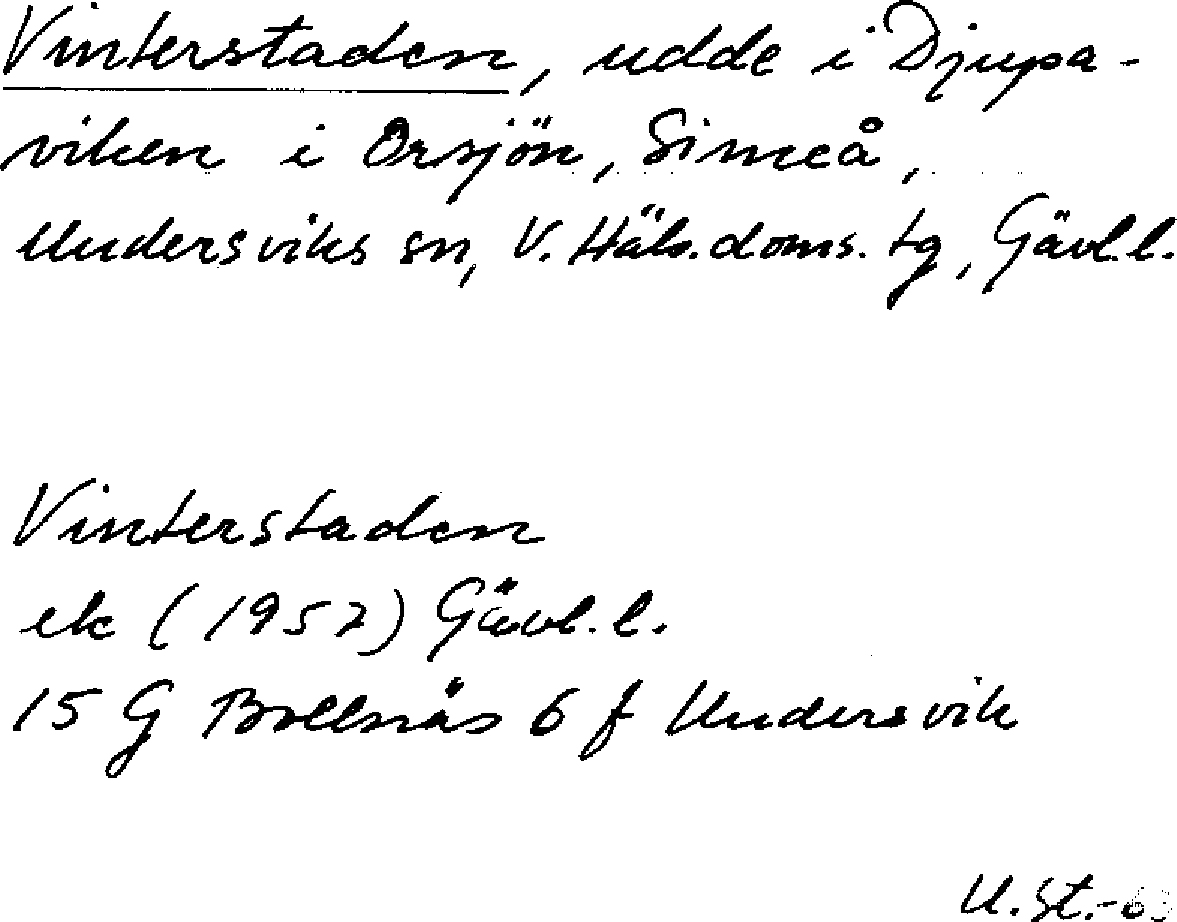 Vinterstaden, udde i Djupa-
viken i Orsjön, Simeå,
Undersviks sn, V. Häls. doms. tg, Gävl.l.
Vinterstaden
ek (1957) Gävl.l.
15 G Bollnäs 6 f Undersvik
U.St.-63